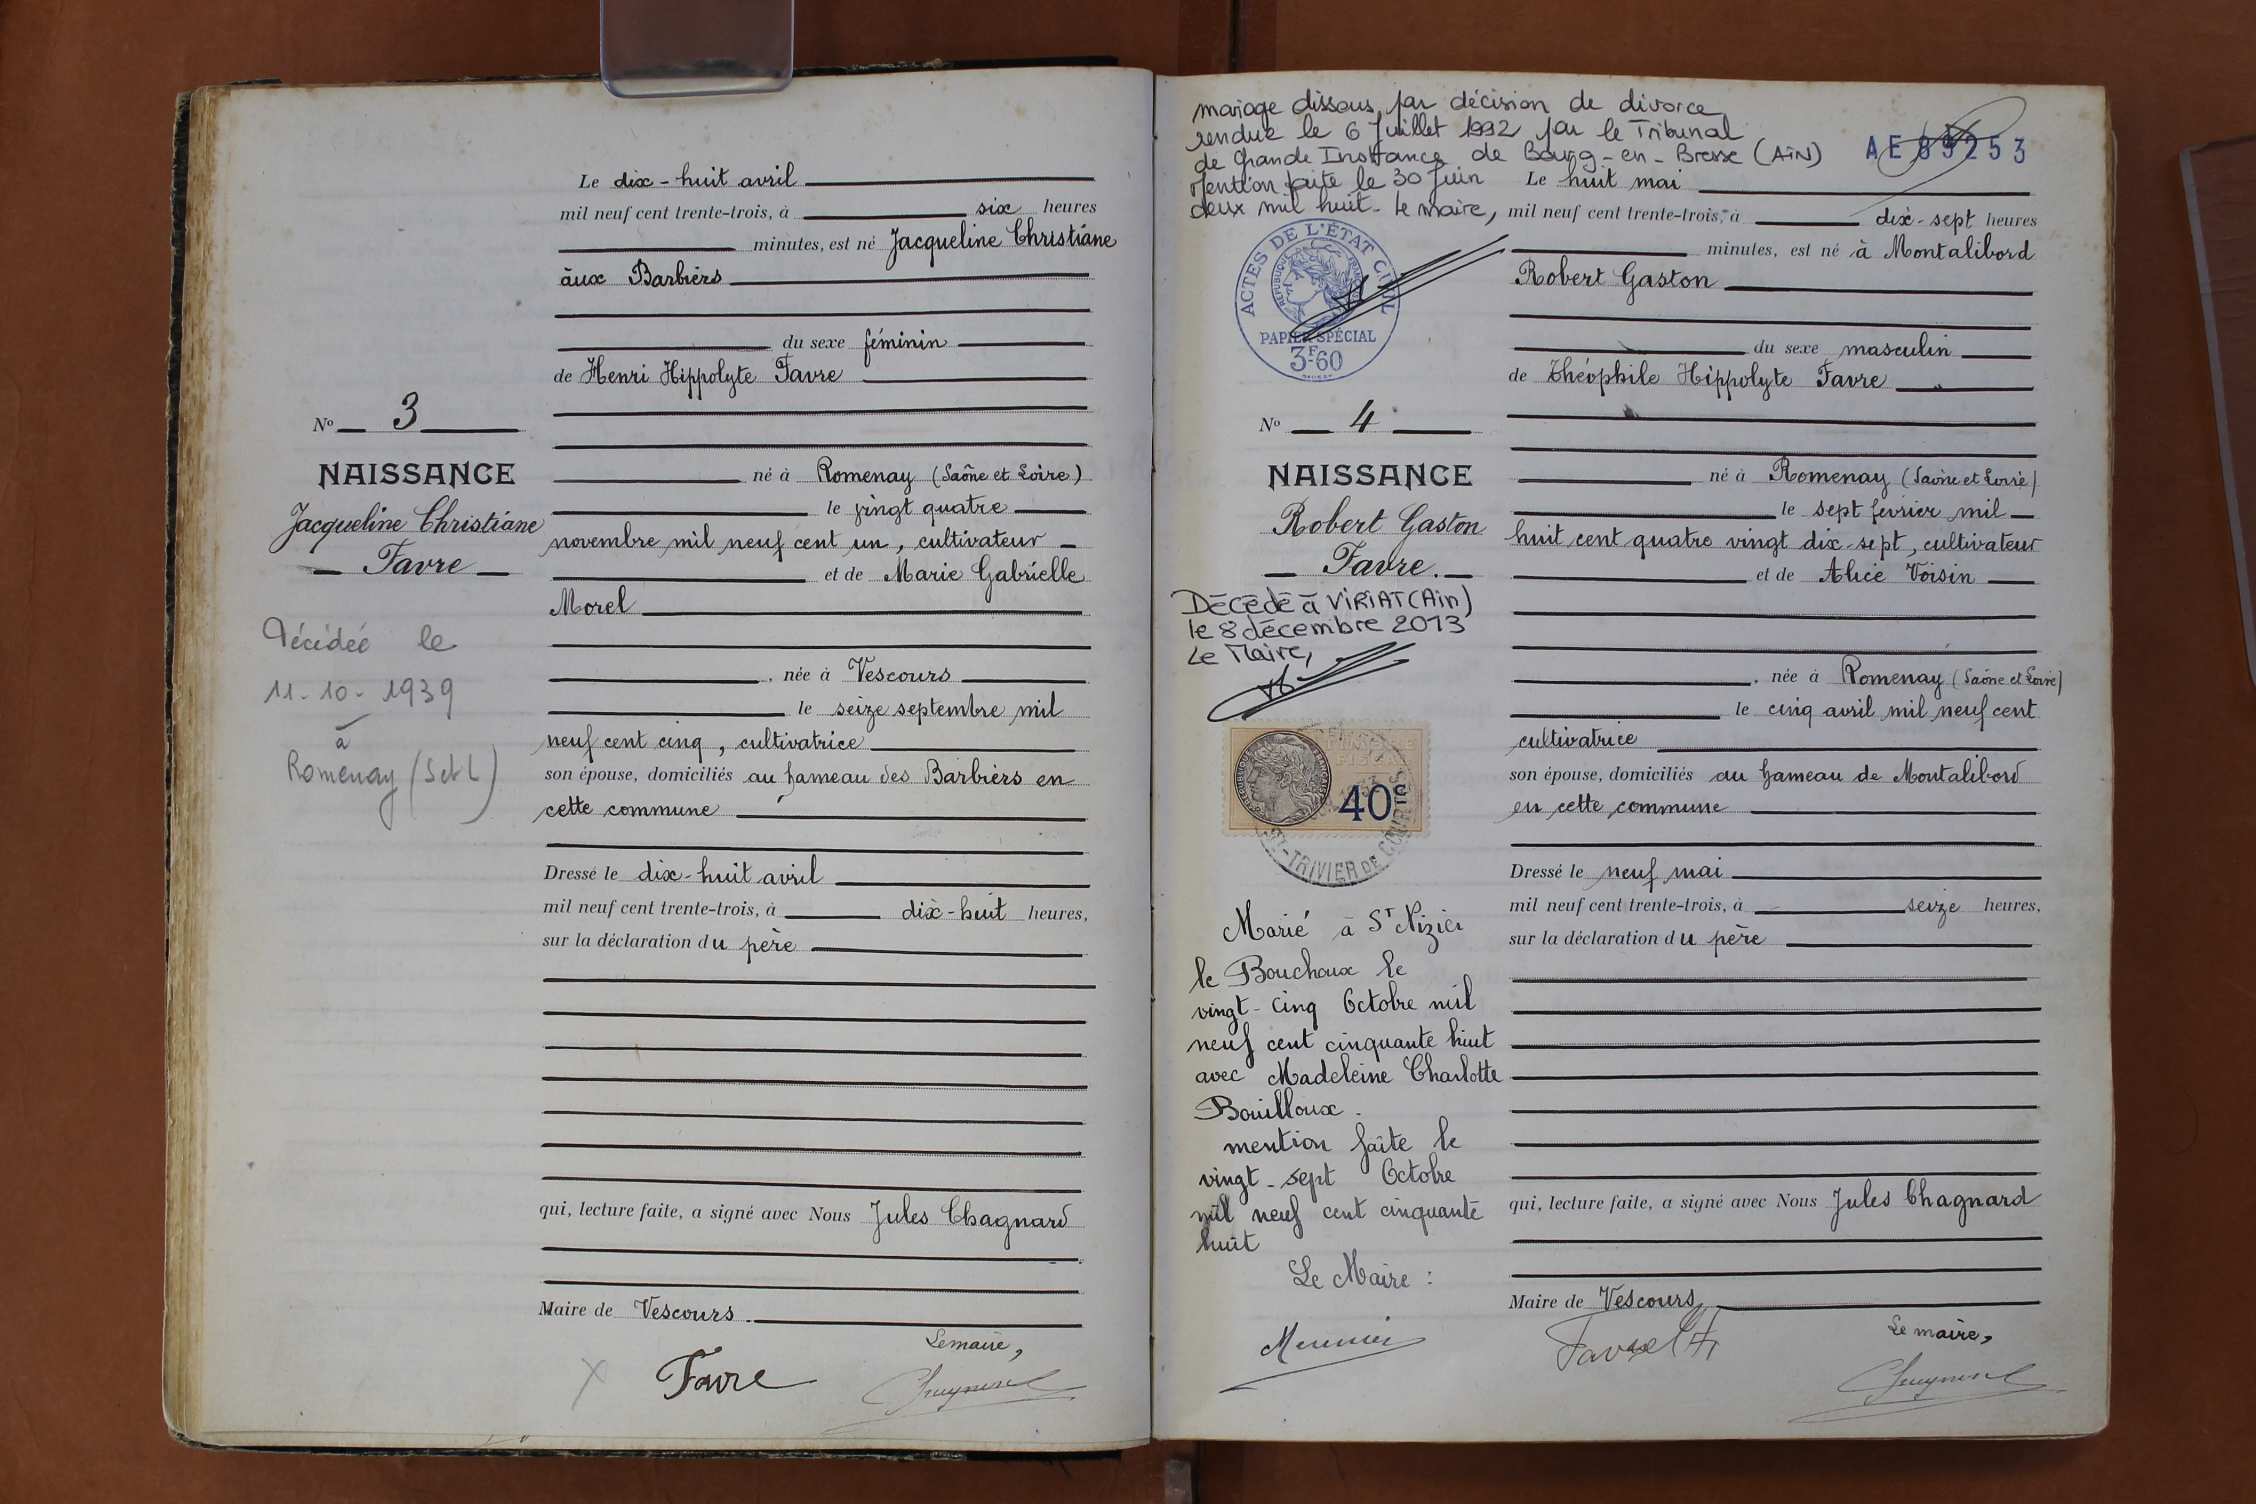 Le dix-huit avril
mil neuf cent trente-trois, à six heures
minutes, est né Jacqueline Christiane
aux Barbiers
du sexe féminin
de Henri Hippolyte Favre
No 3
NAISSANCE
Jacqueline Christiane
Favre
né à Romenay (Saône et Loire)
le vingt quatre
novembre mil neuf cent un, cultivateur
et de Marie Gabrielle
Morel
Décédée le
11-10-1939
à
Romenay (S et L)
, née à Vescours
le seize septembre mil
neuf cent cinq, cultivatrice
son épouse, domiciliés au hameau des Barbiers en
cette commune
Dressé le dix-huit avril
mil neuf cent trente-trois, à dix-huit heures,
sur la déclaration du père
qui, lecture faite, a signé avec Nous Jules Chagnard
Maire de Vescours.
Le maire,
Favre
mariage dissous par décision de divorce
rendue le 6 Juillet 1992 par le Tribunal
de Grande Instance de Bourg-en-Bresse (AiN)
Mention faite le 30 Juin
deux mil huit - Le Maire,
AE 89253
ACTES DE L'ÉTAT CIVIL
RÉPUBLIQUE FRANÇAISE
PAPIER SPÉCIAL
3F-60
Le huit mai
mil neuf cent trente-trois, à dix-sept heures
minutes, est né à Montalibord
Robert Gaston
du sexe masculin
de Théophile Hippolyte Favre
No 4
NAISSANCE
Robert Gaston
Favre.
Décédé à VIRIAT (Ain)
le 8 décembre 2013
Le Maire,
40c
ST-TRIVIER DE COURTES
né à Romenay (Saône et Loire)
le sept février mil
huit cent quatre vingt dix-sept, cultivateur
et de Alice Voisin
, née à Romenay (Saône et Loire)
le cinq avril mil neuf cent
cultivatrice
son épouse, domiciliés au hameau de Montalibord
en cette commune
Dressé le neuf mai
mil neuf cent trente-trois, à seize heures,
sur la déclaration du père
Marié à St Nizier
le Bouchoux le
vingt-cinq Octobre mil
neuf cent cinquante huit
avec Madeleine Charlotte
Bouilloux.
mention faite le
vingt-sept Octobre
mil neuf cent cinquante
huit
Le Maire :
Meunier
qui, lecture faite, a signé avec Nous Jules Chagnard
Maire de Vescours
Le maire,
Favre